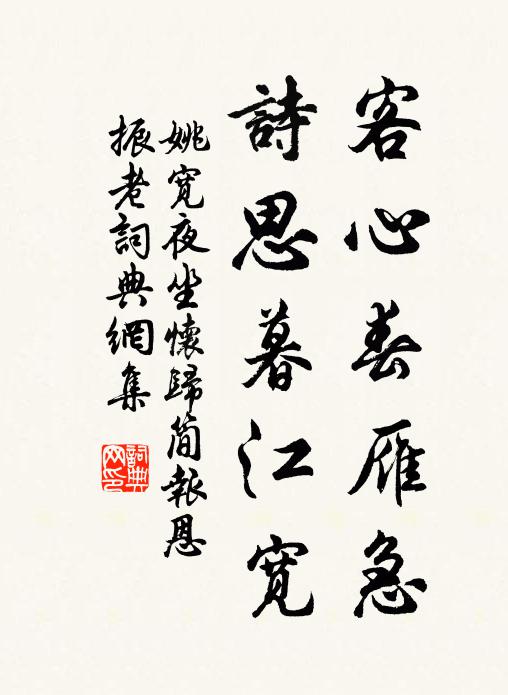 客心春雁急
詩思暮江寬
姚寬夜坐懷歸簡報恩
振老詞典網集
詞典网印